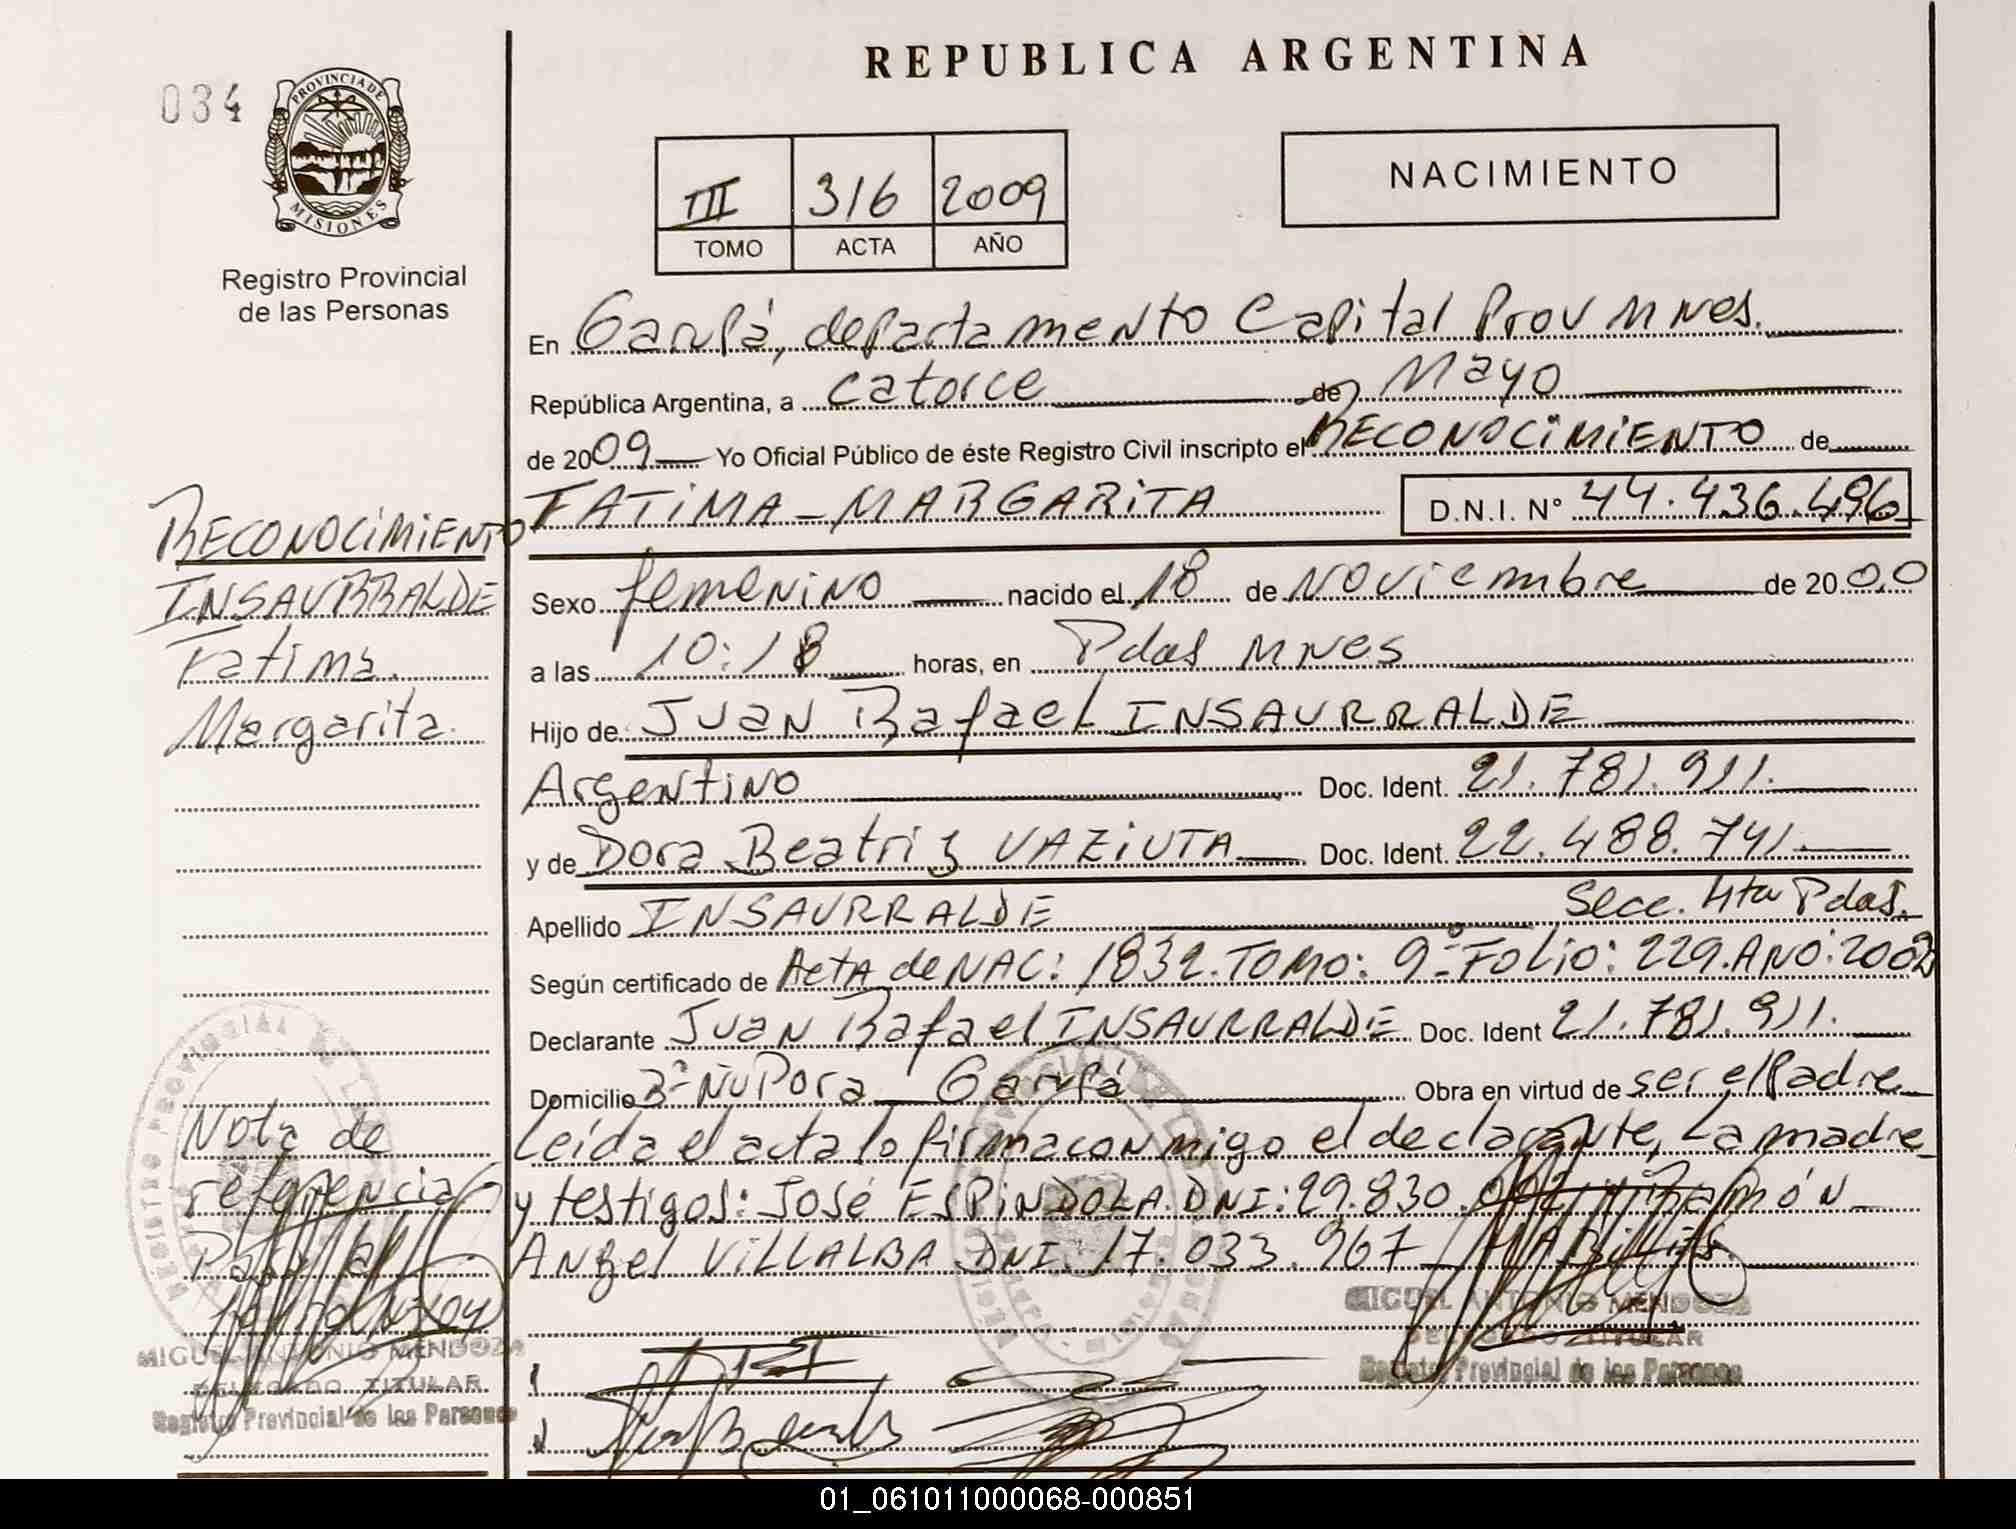 REPUBLICA ARGENTINA
034
PROVINCIA DE
MISIONES
Registro Provincial
de las Personas
III 316 2009
TOMO ACTA AÑO
NACIMIENTO
En Garupá, departamento Capital Prov Mnes.
República Argentina, a catorce de Mayo
de 2009 Yo Oficial Público de éste Registro Civil inscripto el RECONOCIMIENTO de
FATIMA - MARGARITA D.N.I. Nº 44.436.496
Sexo femenino nacido el 18 de Noviembre de 2000
a las 10:18 horas, en Pdas Mnes
Hijo de Juan Rafael INSAURRALDE
Argentino Doc. Ident. 21.781.911.
y de Dora Beatriz VAZIUTA Doc. Ident. 22.488.741.
Apellido INSAURRALDE Secc. 4ta Pdas.
Según certificado de Acta de NAC: 1832. TOMO: 9º Folio: 229. AÑO: 2002
Declarante Juan Rafael INSAURRALDE Doc. Ident 21.781.911.
Domicilio Bº Ñu Pora Garupá Obra en virtud de ser el Padre
Leída el acta lo firma conmigo el declarante, La madre
y testigos: José ESPINDOLA. DNI: 29.830. Ramón
Angel VILLALBA DNI: 17.033.967
RECONOCIMIENTO
INSAURRALDE
Fatima
Margarita.
Nota de
referencia
MIGUEL ANTONIO MENDOZA
DELEGADO TITULAR
Registro Provincial de las Personas
MIGUEL ANTONIO MENDOZA
DELEGADO TITULAR
Registro Provincial de las Personas
01_061011000068-000851